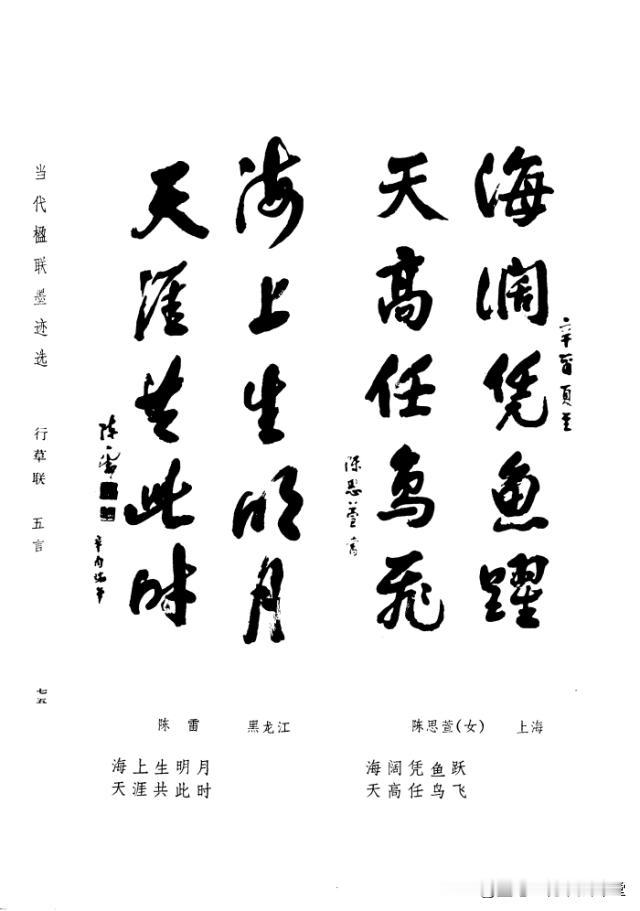 海阔凭鱼跃
天高任鸟飞
陈思萱书
海上生明月
天涯共此时
陈雷
当代楹联墨迹选 行草联 五言
七五
陈思萱(女) 上海
海阔凭鱼跃
天高任鸟飞
陈雷 黑龙江
海上生明月
天涯共此时